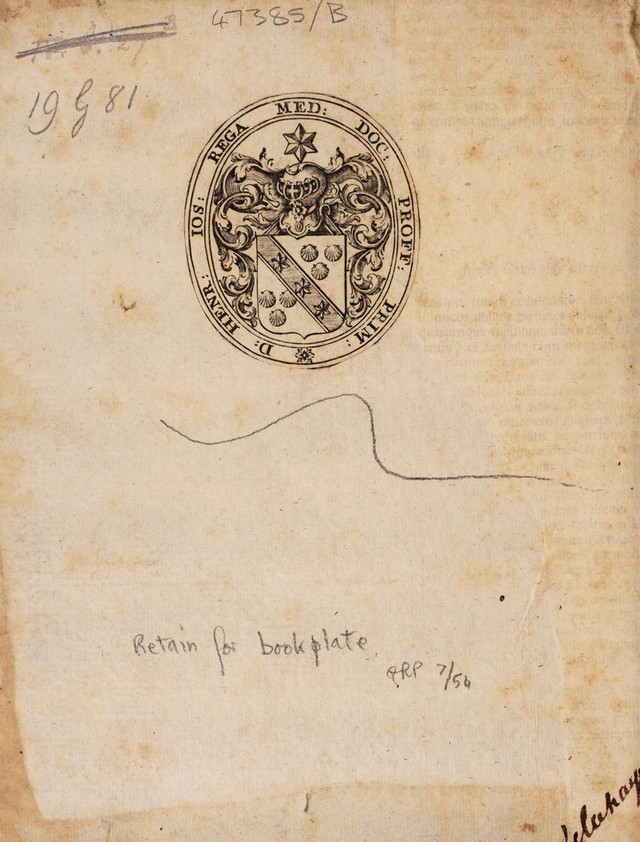 47385/B
19 G 81
D: HENR: IOS: REGA MED: DOC: PROFF: PRIM:
Retain for bookplate.
7/54